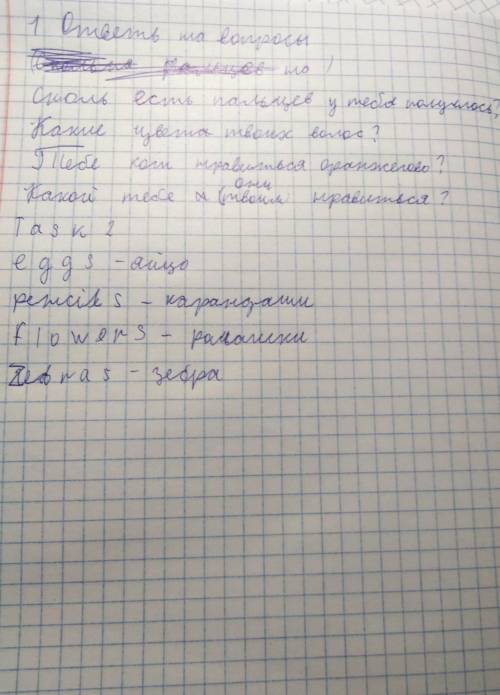 1 Ответь на вопросы
Сколь есть пальцев у тебя получлось?
Какие цвета твоих волос?
Тебе кот нравиться оранжегово?
Какой тебе (твоим они нравиться?
Task 2
eggs - яйцо
pencils - карандаши
flowers - ромашки
Zebras - зебра